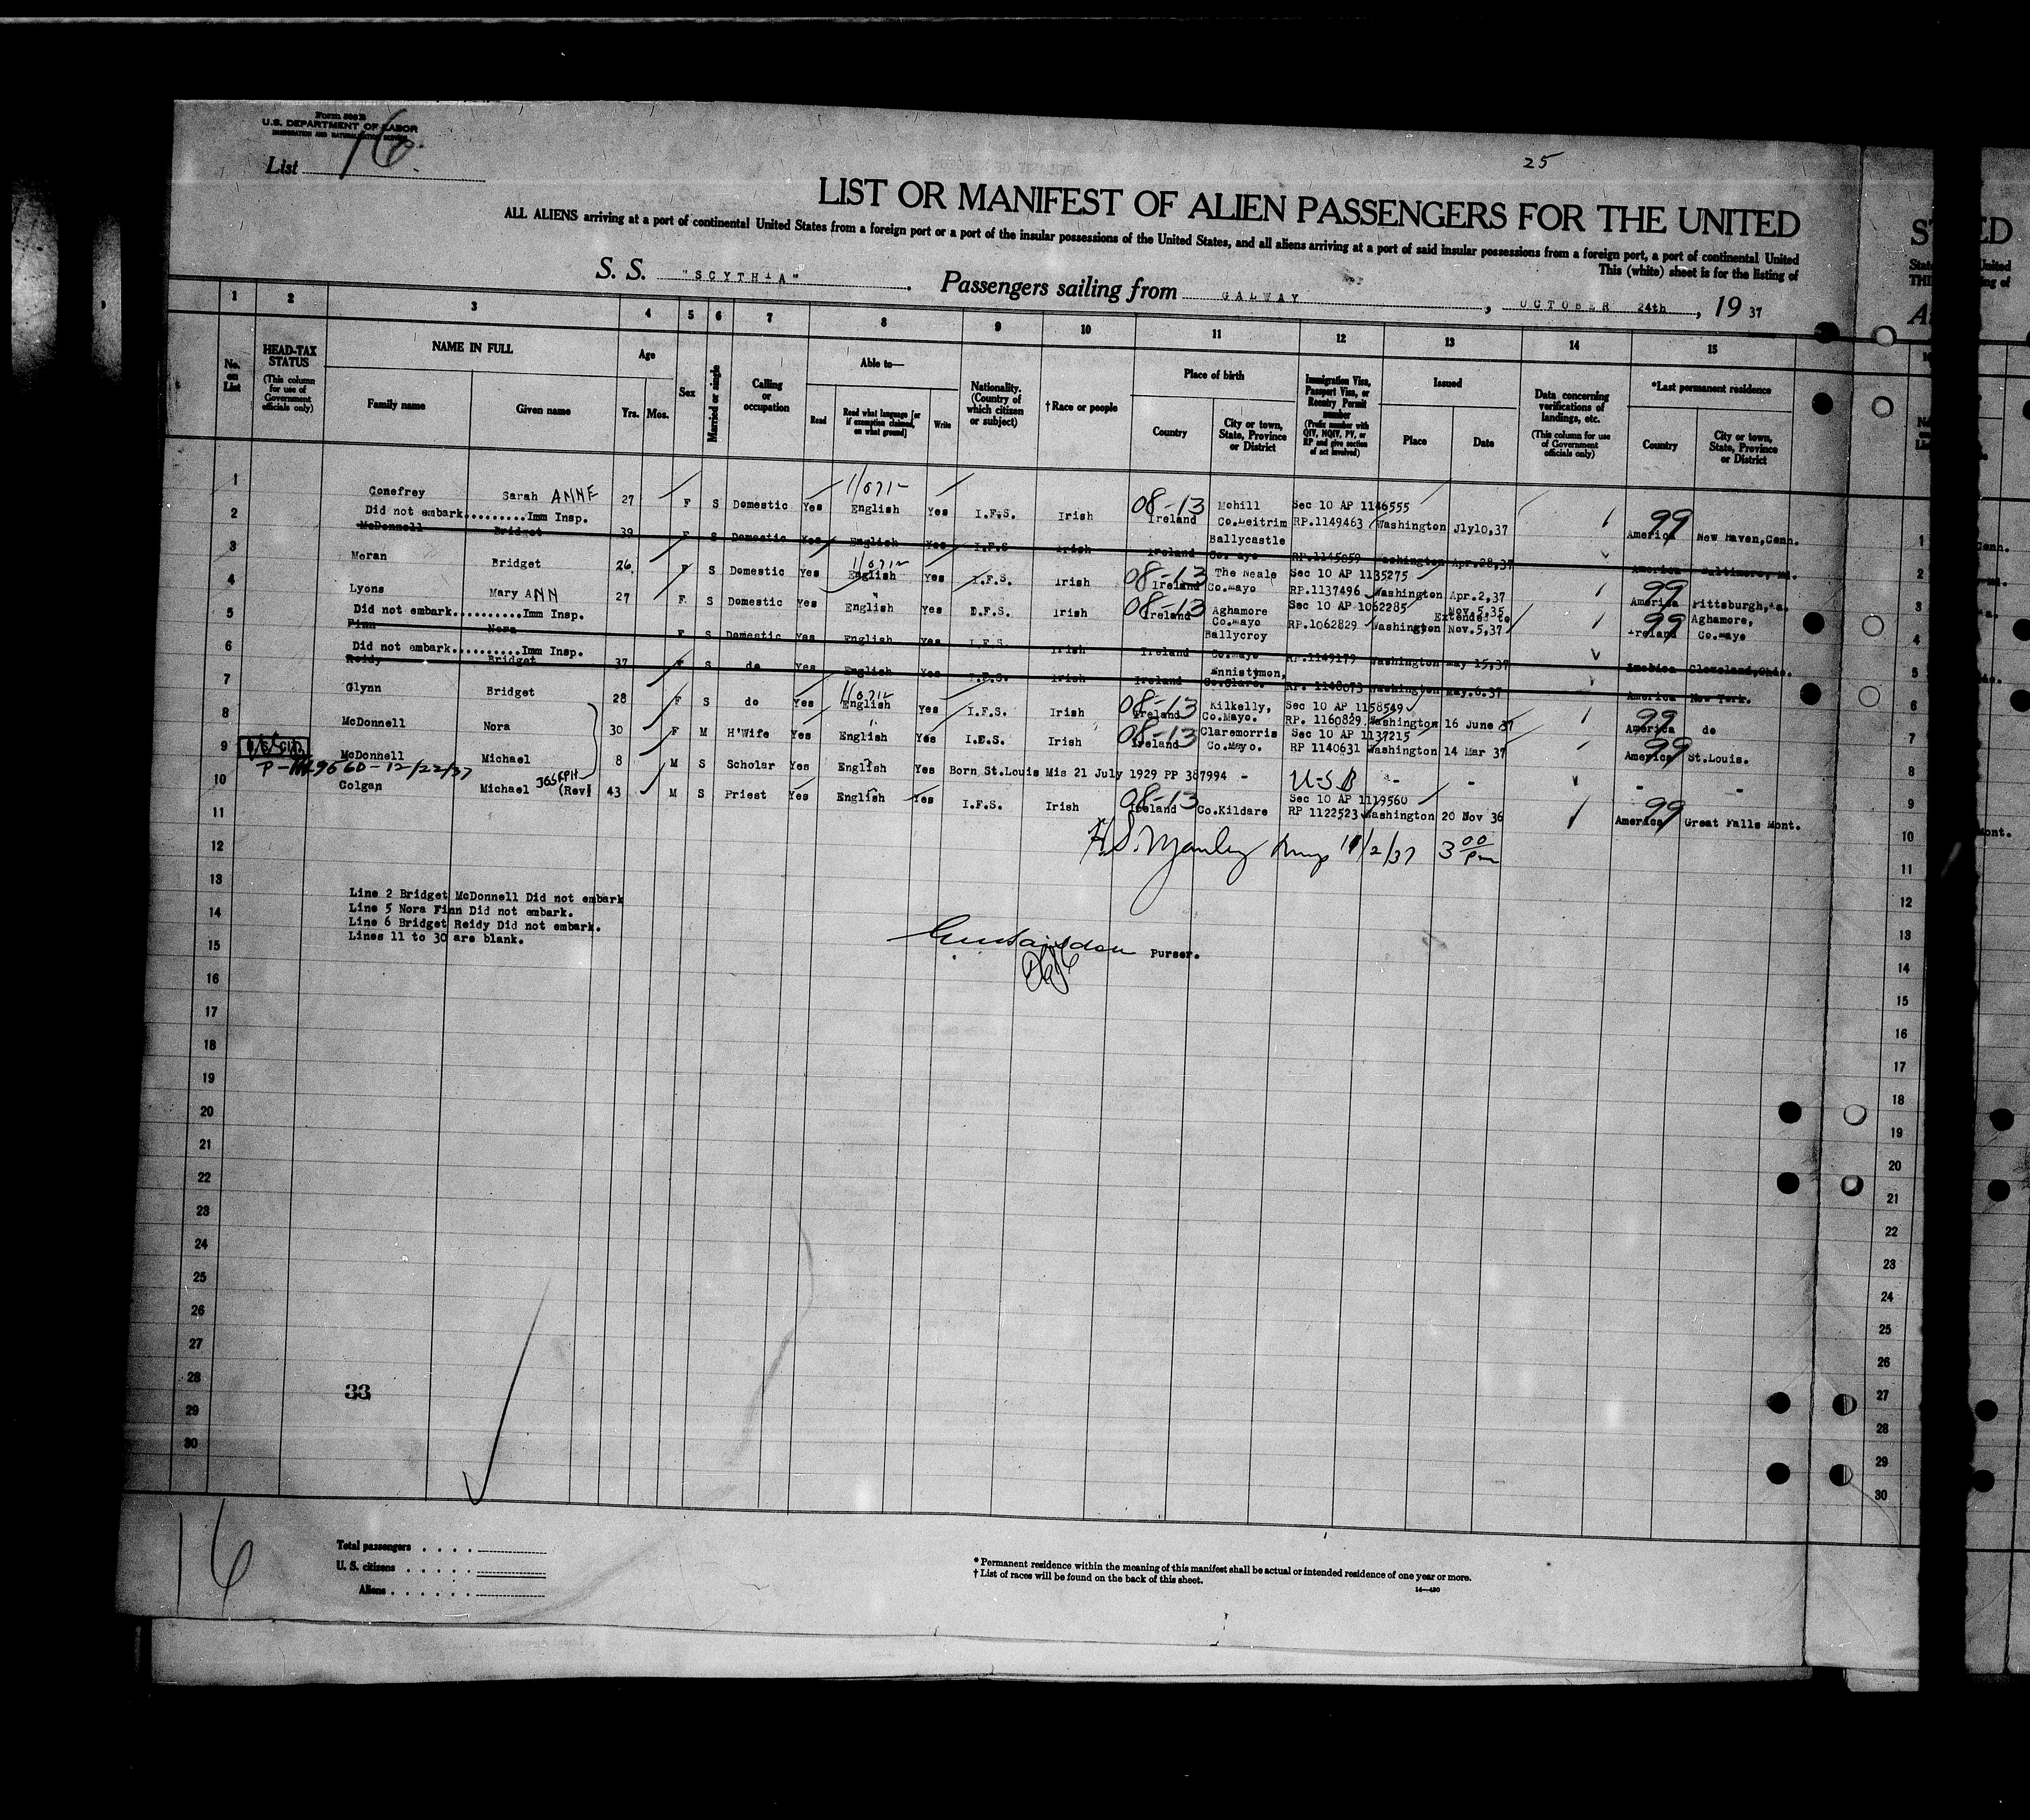 Form 500 B
U.S. DEPARTMENT OF LABOR
IMMIGRATION AND NATURALIZATION SERVICE
List 16.
25
LIST OR MANIFEST OF ALIEN PASSENGERS FOR THE UNITED
ALL ALIENS arriving at a port of continental United States from a foreign port or a port of the insular possessions of the United States, and all aliens arriving at a port of said insular possessions from a foreign port, a port of continental United
This (white) sheet is for the listing of
S. S. "SCYTHIA". Passengers sailing from GALWAY, OCTOBER 24th, 19 37
1 2 3 4 5 6 7 8 9 10 11 12 13 14 15
No. on List
HEAD-TAX STATUS (This column for use of Government officials only)
NAME IN FULL Family name Given name
Age Yrs. Mos.
Sex
Married or single
Calling or occupation
Able to— Read Read what language [or if exemption claimed, on what ground] Write
Nationality. (Country of which citizen or subject)
† Race or people
Place of birth Country City or town, State, Province or District
Immigration Visa, Passport Visa, or Reentry Permit number (Prefix number with QIV, NQIV, PV, or RP and give section of act involved)
Issued Place Date
Data concerning verifications of landings, etc. (This column for use of Government officials only)
*Last permanent residence Country City or town, State, Province or District
1 Conefrey Sarah ANNE 27 F S Domestic Yes English Yes I.F.S. Irish 08-13 Ireland Mohill Co.Leitrim Sec 10 AP 1146555 RP.1149463 Washington Jly10,37 99 America New Haven,Conn.
Did not embark.........Imm Insp.
2 McDonnell Bridget 39 F S Domestic Yes English Yes I.F.S Irish Ireland Ballycastle Co. Mayo RP.1145059 Washington Apr.28,37 America Baltimore, Md.
3 Moran Bridget 26 F S Domestic Yes English Yes I.F.S. Irish 08-13 Ireland The Neale Co.Mayo Sec 10 AP 1135275 RP.1137496 Washington Apr.2,37 99 America Pittsburgh,Pa.
4 Lyons Mary ANN 27 F. S Domestic Yes English Yes I.F.S. Irish 08-13 Ireland Aghamore Co.Mayo Sec 10 AP 1062285 RP.1062829 Washington Nov.5,35 Extended to Nov.5,37 99 Ireland Aghamore, Co.Mayo
Did not embark..........Imm Insp.
5 Finn Nora F S Domestic Yes English Yes I.F.S. Irish Ireland Ballycroy Co.Mayo RP.1149179 Washington May 15,37 America Cleveland,Ohio.
Did not embark..........Imm Insp.
6 Reidy Bridget 37 F S do Yes English Yes I.F.S. Irish Ireland Ennistymon, Co.Clare. RP. 1148073 Washington May.6.37 America New York.
7 Glynn Bridget 28 F S do Yes English Yes I.F.S. Irish 08-13 Ireland Kilkelly, Co.Mayo. Sec 10 AP 1158549 RP. 1160829 Washington 16 June 37 99 America do
8 McDonnell Nora 30 F M H'Wife Yes English Yes I.F.S. Irish 08-13 Ireland Claremorris Co.Mayo. Sec 10 AP 1137215 RP 1140631 Washington 14 Mar 37 99 America St.Louis.
9 McDonnell Michael 8 M S Scholar Yes English Yes Born St.Louis Mis 21 July 1929 PP 387994 - USB - - - -
10 Colgan Michael JOSEPH (Rev) 43 M S Priest Yes English Yes I.F.S. Irish 08-13 Ireland Co.Kildare Sec 10 AP 1119560 RP 1122523 Washington 20 Nov 36 99 America Great Falls Mont.
11
12
11/2/37 3 00 Pm
13
Line 2 Bridget McDonnell Did not embark
Line 5 Nora Finn Did not embark.
14
Line 6 Bridget Reidy Did not embark.
Lines 11 to 30 are blank.
15
Purser.
16
17
18
19
20
21
22
23
24
25
26
27
28
33
29
30
16
Total passengers
U. S. citizens
Aliens
* Permanent residence within the meaning of this manifest shall be actual or intended residence of one year or more.
† List of races will be found on the back of this sheet.
14—430